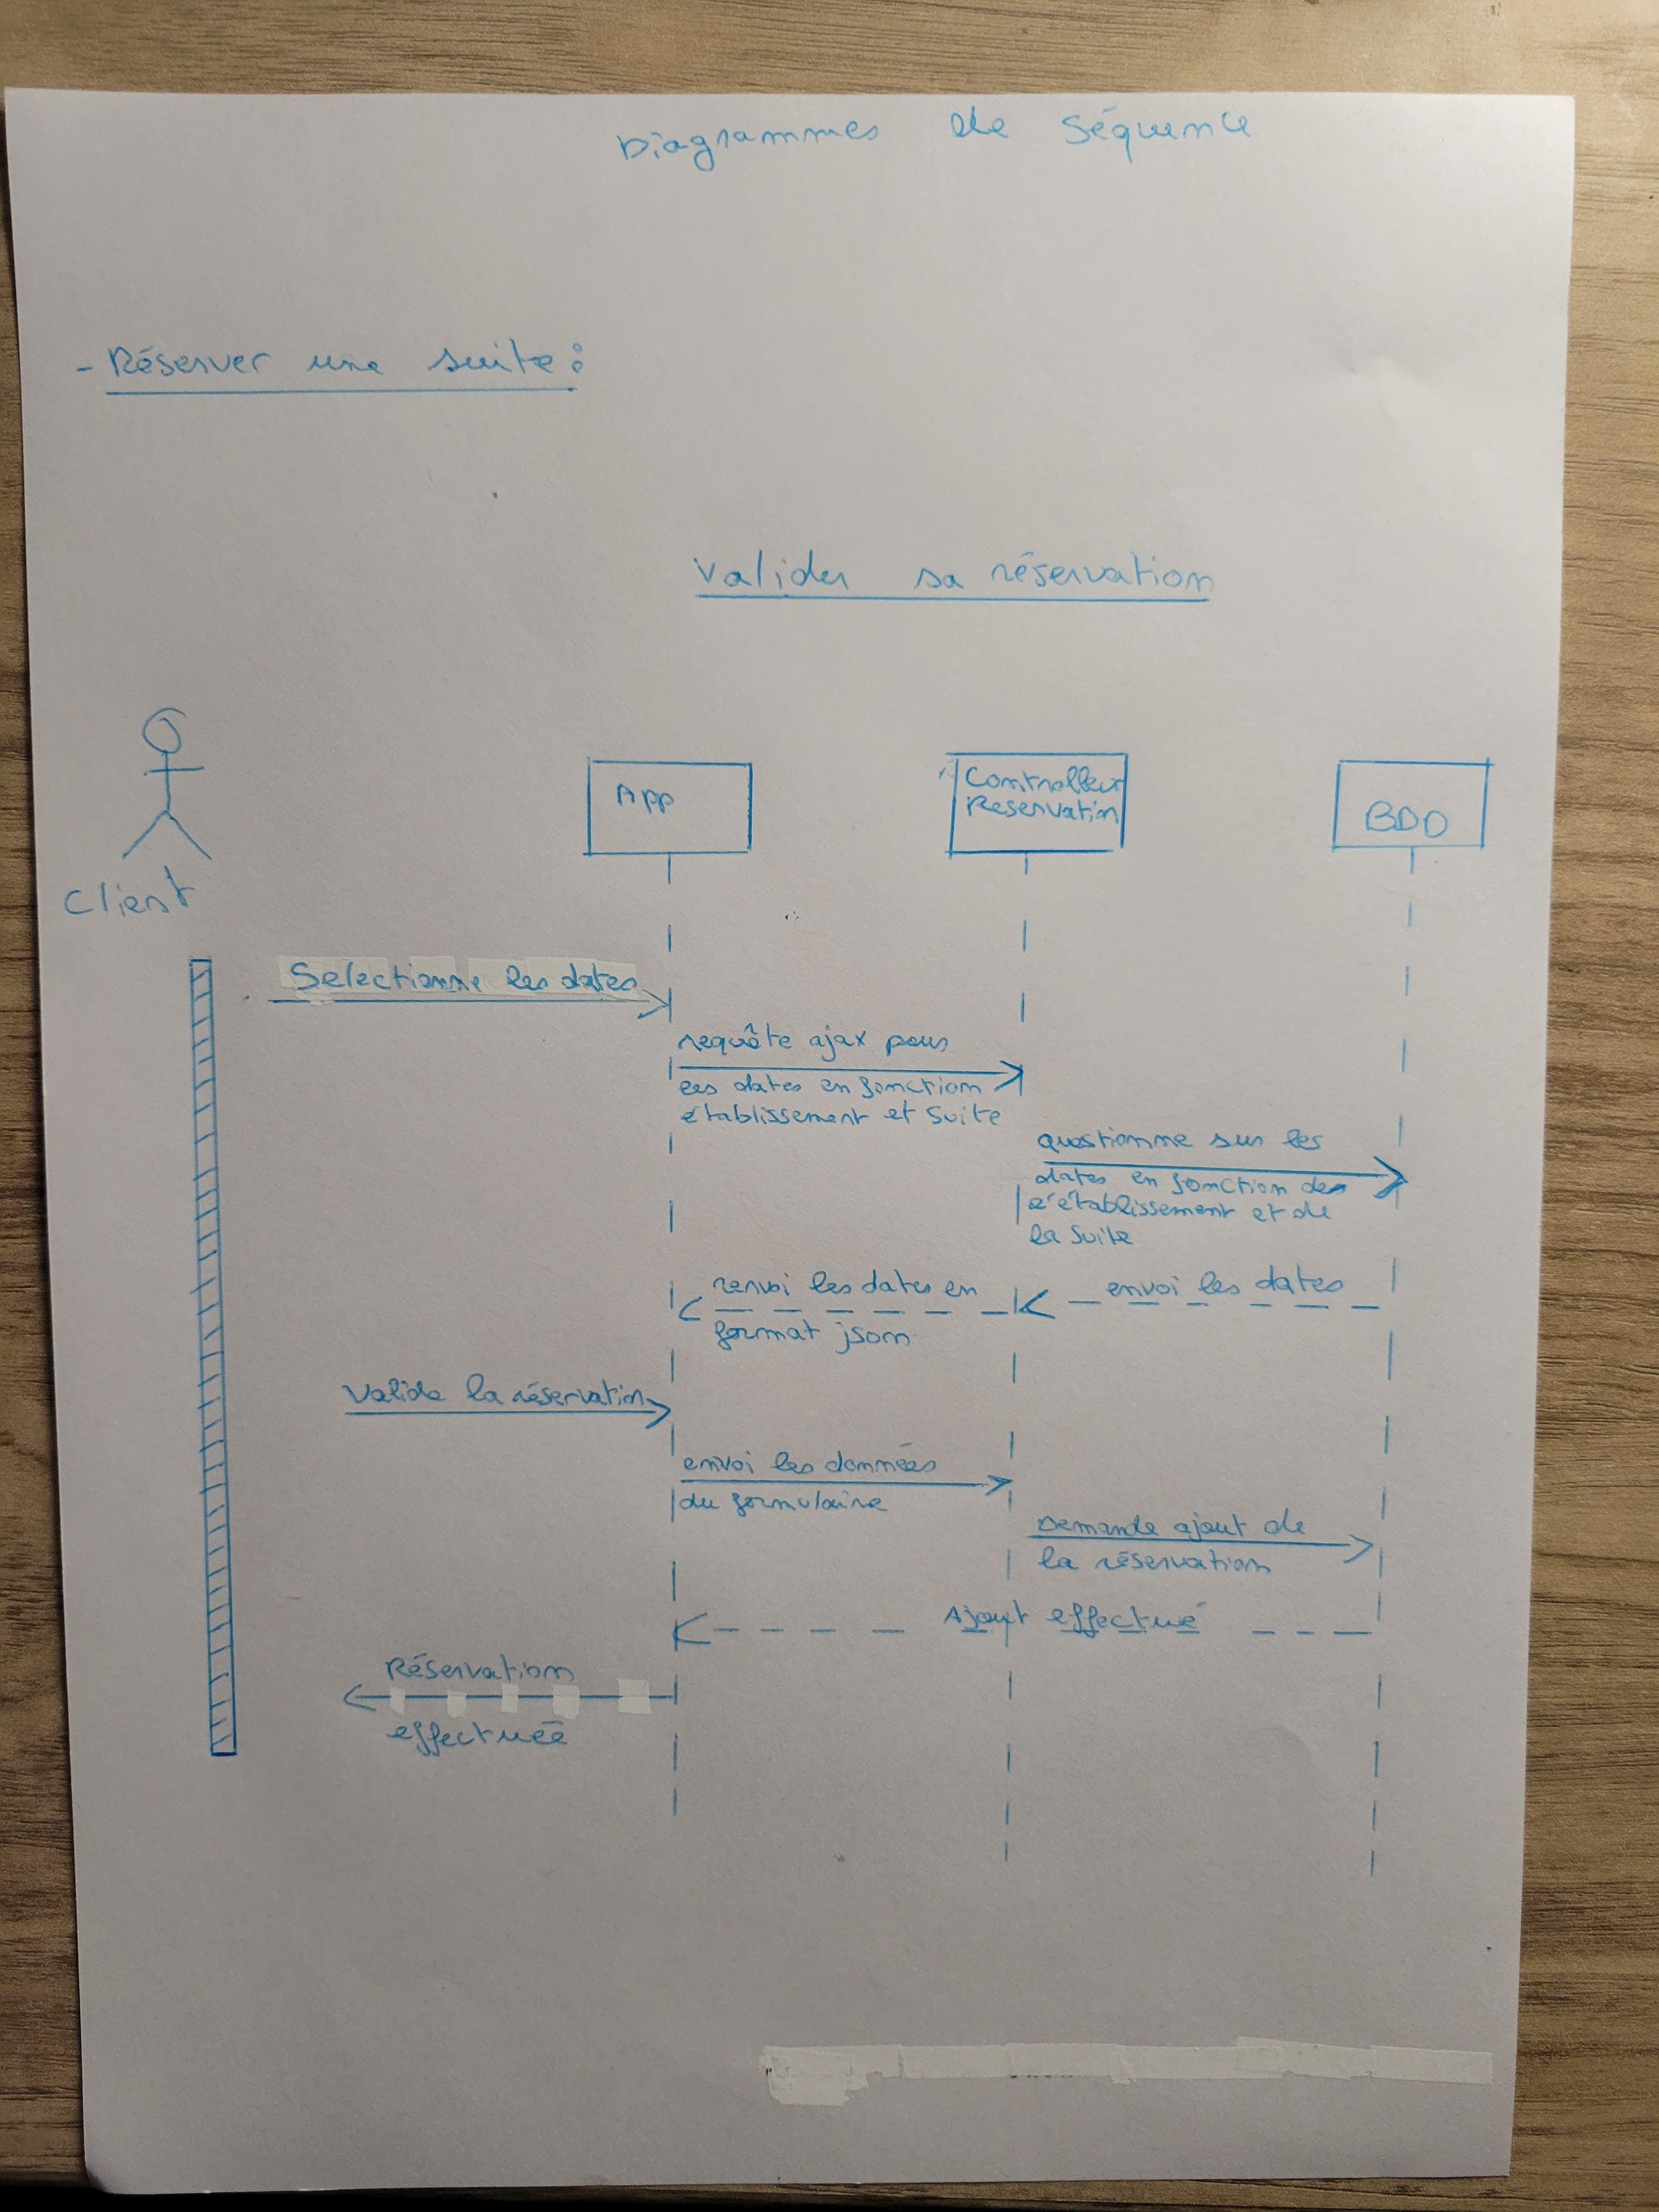 Diagrammes de séquence
- Réserver une suite :
Valider sa réservation
Client
App
Controlleur
Reservation
BDD
Selectionne les dates
requête ajax pour
les dates en fonction
établissement et suite
questionne sur les
dates en fonction de
l'établissement et de
la suite
envoi les dates
renvoi les dates en
format json
Valide la réservation
envoi les données
du formulaire
Demande ajout de
la réservation
Ajout effectué
Réservation
effectuée